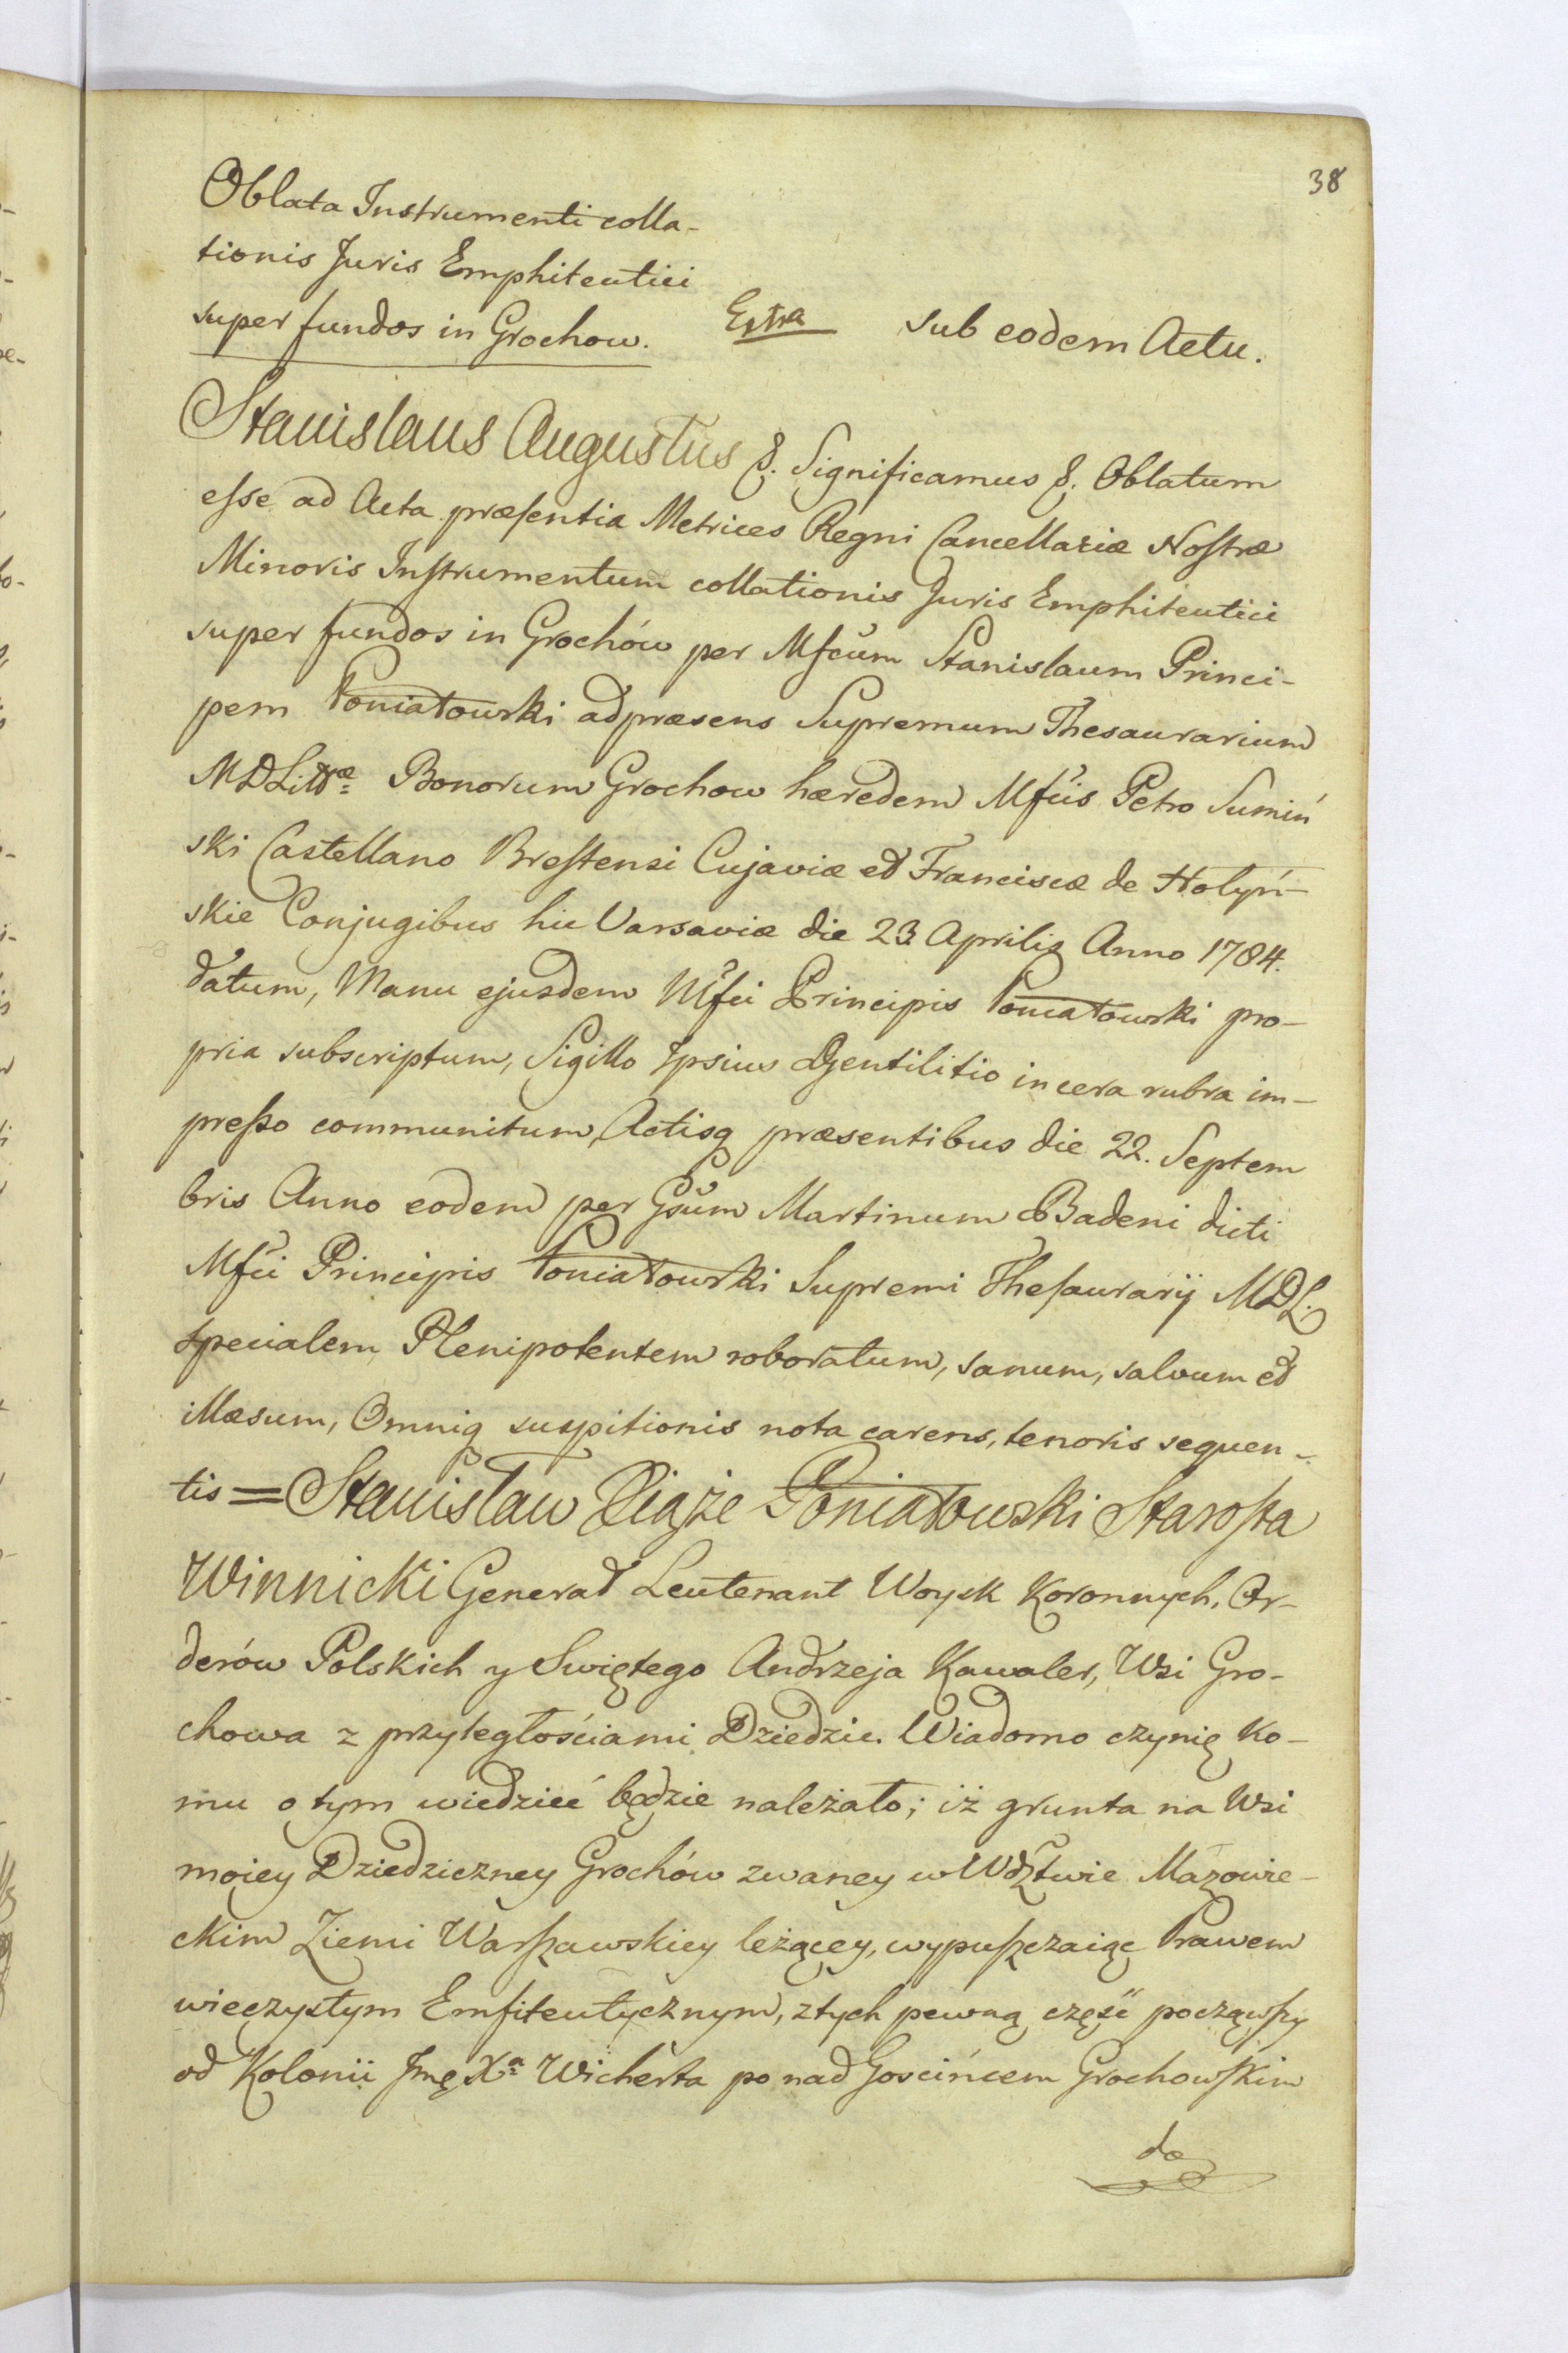 38
Oblata Instrumenti colla-
tionis Juris Emphiteutici
super fundos in Grochow.
Extra sub eodem Actu.
Stanislaus Augustus &. Significamus &. Oblatum
esse ad Acta præsentia Metrices Regni Cancellariæ Nostræ
Minoris Instrumentum collationis Juris Emphiteutici
super fundos in Grochów per Mfcum Stanislaum Princi-
pem Poniatowski adpræsens Supremum Thesaurarium
MDLittæ Bonorum Grochow hæredem Mfcis Petro Sumiń
ski Castellano Brestensi Cujaviæ et Franciscæ de Hołyń-
skie Conjugibus hic Varsaviæ die 23 Aprilis Anno 1784.
datum, Manu ejusdem Mfci Principis Poniatowski pro-
pria subscriptum, Sigillo Ipsius Gentilitio in cera rubra im-
presso communitum, Actisq præsentibus die 22. Septem
bris Anno eodem per Gsum Martinum Badeni dicti
Mfci Principis Poniatowski Supremi Thesaurarij MDL.
specialem Plenipotentem roboratum, sanum, salvum et
illæsum, Omniq suspitionis nota carens, tenoris sequen-
tis = Stanisław Xiąże Poniatowski Starosta
Winnicki Generał Leutenant Woysk Koronnych, Or-
derów Polskich y Swiętego Andrzeja Kawaler, Wsi Gro-
chowa z przyległościami Dziedzic. Wiadomo czynię Ko-
mu o tym wiedzieć będzie należało; iż grunta na Wsi
moiey Dziedziczney Grochów zwaney w Wdztwie Mazowie-
ckim Ziemi Warszawskiey leżącey, wypuszczaiąc Prawem
wieczystym Emfiteutycznym, z tych pewną część począwszy
od Kolonii Jmę Xa Wicherta po nad Gościńcem Grochowskim
do